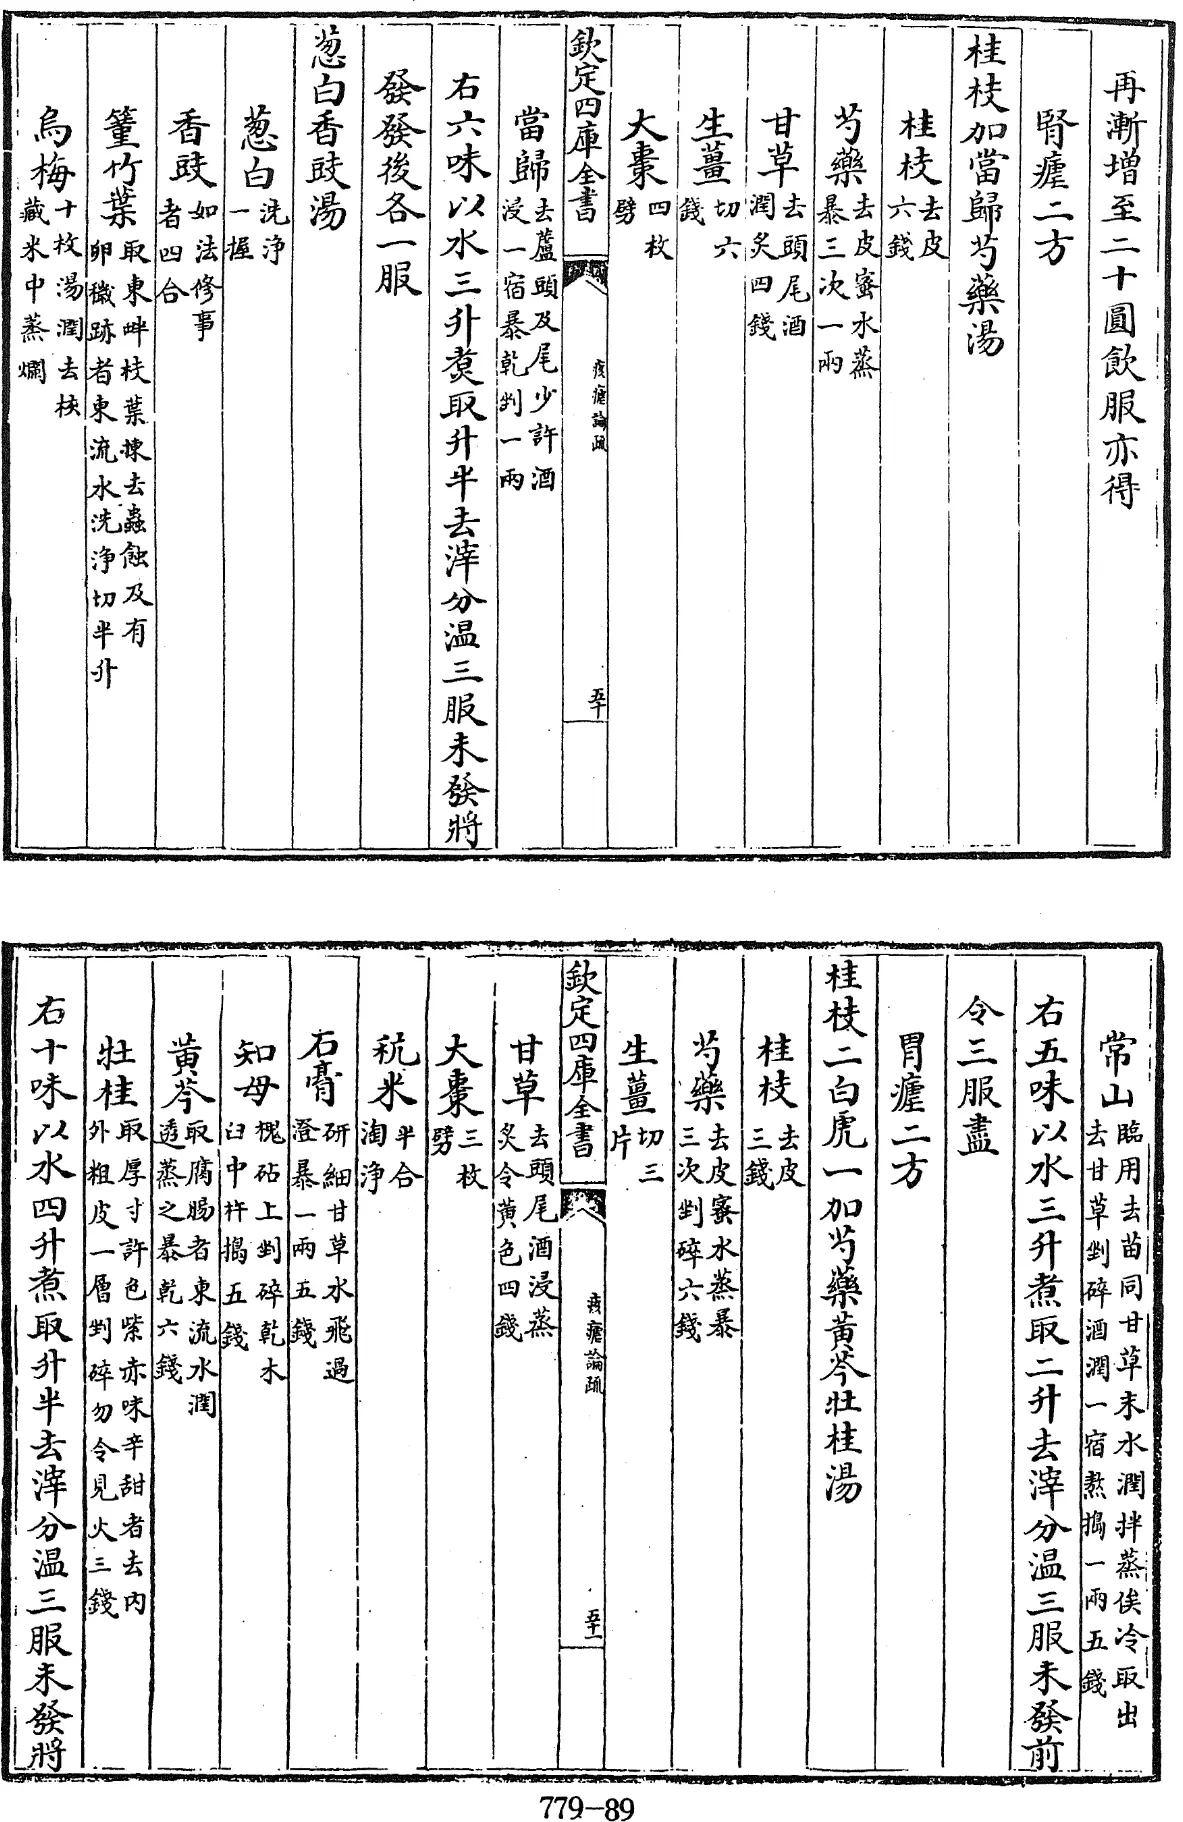 再漸增至二十圓飲服亦得
腎瘧二方
桂枝加當歸芍藥湯
桂枝去皮六錢
芍藥去皮蜜水蒸暴三次一兩
甘草去頭尾酒潤炙四錢
生薑切六錢
大棗四枚劈
欽定四庫全書
痎瘧論疏
五十
當歸去蘆頭及尾少許酒浸一宿暴乾剉一兩
右六味以水三升煑取升半去滓分温三服未發將
發發後各一服
葱白香豉湯
葱白洗浄一握
香豉如法修事者四合
篁竹葉取東畔枝葉揀去蟲蝕及有卵穢跡者東流水洗浄切半升
烏梅十枚湯潤去核藏米中蒸爛
常山臨用去苗同甘草末水潤拌蒸俟冷取出去甘草剉碎酒潤一宿熬搗一兩五錢
右五味以水三升煮取二升去滓分温三服未發前
令三服盡
胃瘧二方
桂枝二白虎一加芍藥黄芩牡桂湯
桂枝去皮三錢
芍藥去皮蜜水蒸暴三次剉碎六錢
生薑切三片
欽定四庫全書
痎瘧論疏
五十一
甘草去頭尾酒浸蒸炙令黄色四錢
大棗三枚劈
秔米半合淘浄
石膏研細甘草水飛過澄暴一兩五錢
知母槐砧上剉碎乾木臼中杵搗五錢
黄芩取腐腸者東流水潤透蒸之暴乾六錢
牡桂取厚寸許色紫赤味辛甜者去内外粗皮一層剉碎勿令見火三錢
右十味以水四升煮取升半去滓分温三服未發將
779-89